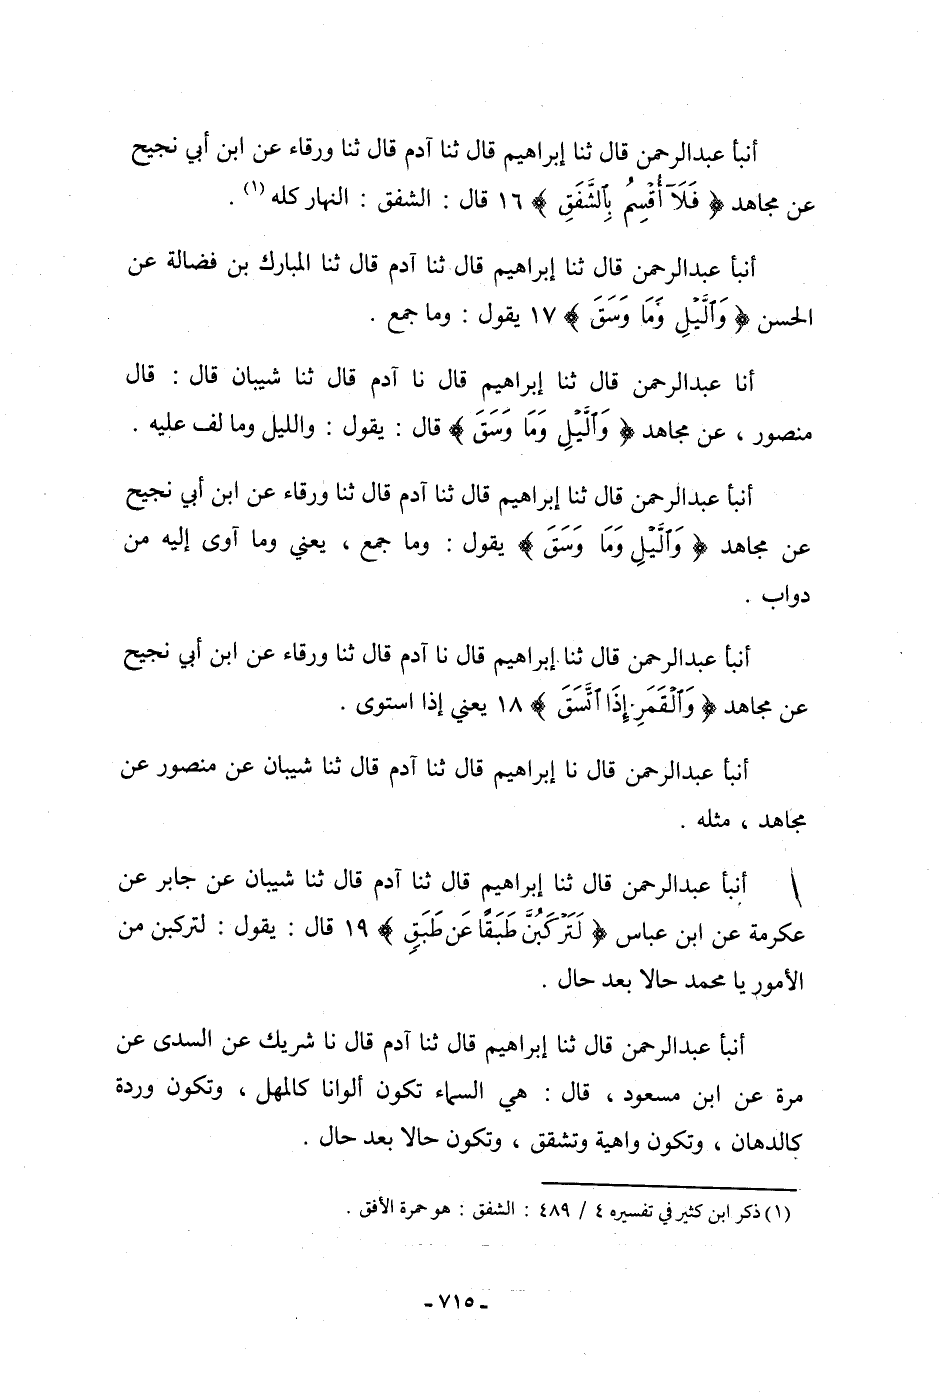 أنبأ عبدالرحمن قال ثنا إبراهيم قال ثنا آدم قال ثنا ورقاء عن ابن أبي نجيح
عن مجاهد ﴿ فَلَآ أُقْسِمُ بِٱلشَّفَقِ ﴾ ١٦ قال : الشفق : النهار كله (١) .
أنبأ عبدالرحمن قال ثنا إبراهيم قال ثنا آدم قال ثنا المبارك بن فضالة عن
الحسن ﴿ وَٱلَّيْلِ وَمَا وَسَقَ ﴾ ١٧ يقول : وما جمع .
أنا عبدالرحمن قال ثنا إبراهيم قال نا آدم قال ثنا شيبان قال : قال
منصور ، عن مجاهد ﴿ وَٱلَّيْلِ وَمَا وَسَقَ ﴾ قال : يقول : والليل وما لف عليه .
أنبأ عبدالرحمن قال ثنا إبراهيم قال ثنا آدم قال ثنا ورقاء عن ابن أبي نجيح
عن مجاهد ﴿ وَٱلَّيْلِ وَمَا وَسَقَ ﴾ يقول : وما جمع ، يعني وما آوى إليه من
دواب .
أنبأ عبدالرحمن قال ثنا إبراهيم قال نا آدم قال ثنا ورقاء عن ابن أبي نجيح
عن مجاهد ﴿ وَٱلْقَمَرِ إِذَا ٱتَّسَقَ ﴾ ١٨ يعني إذا استوى .
أنبأ عبدالرحمن قال نا إبراهيم قال ثنا آدم قال ثنا شيبان عن منصور عن
مجاهد ، مثله .
أنبأ عبدالرحمن قال ثنا إبراهيم قال ثنا آدم قال ثنا شيبان عن جابر عن
عكرمة عن ابن عباس ﴿ لَتَرْكَبُنَّ طَبَقًا عَن طَبَقٍ ﴾ ١٩ قال : يقول : لتركبن من
الأمور يا محمد حالا بعد حال .
أنبأ عبدالرحمن قال ثنا إبراهيم قال ثنا آدم قال نا شريك عن السدى عن
مرة عن ابن مسعود ، قال : هي السماء تكون ألوانا كالمهل ، وتكون وردة
كالدهان ، وتكون واهية وتشقق ، وتكون حالا بعد حال .
(١) ذكر ابن كثير في تفسيره ٤ / ٤٨٩ : الشفق : هو حمرة الأفق .
- ٧١٥ -